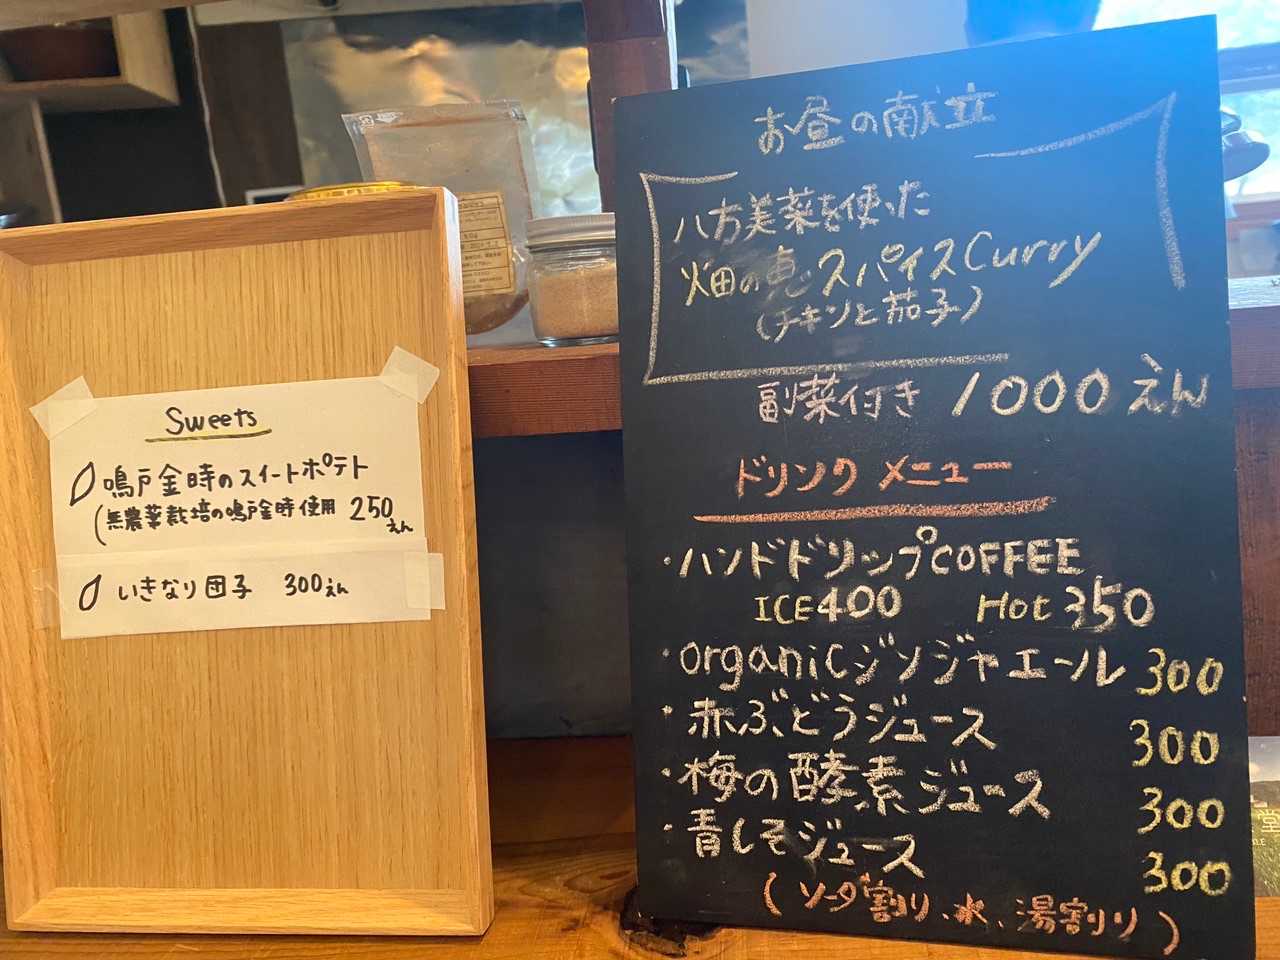 Sweets
鳴戸金時のスイートポテト
(無農薬栽培の鳴戸金時使用 250えん
いきなり団子 300えん
お昼の献立
八方美菜を使った
畑の恵 スパイスCurry
(チキンと茄子)
副菜付き 1000えん
ドリンク メニュー
・ハンドドリップCOFFEE
ICE400 Hot 350
・organicジンジャエール 300
・赤ぶどうジュース 300
・梅の酵素ジュース 300
・青しそジュース 300
(ソーダ割り、水、湯割り)
堂